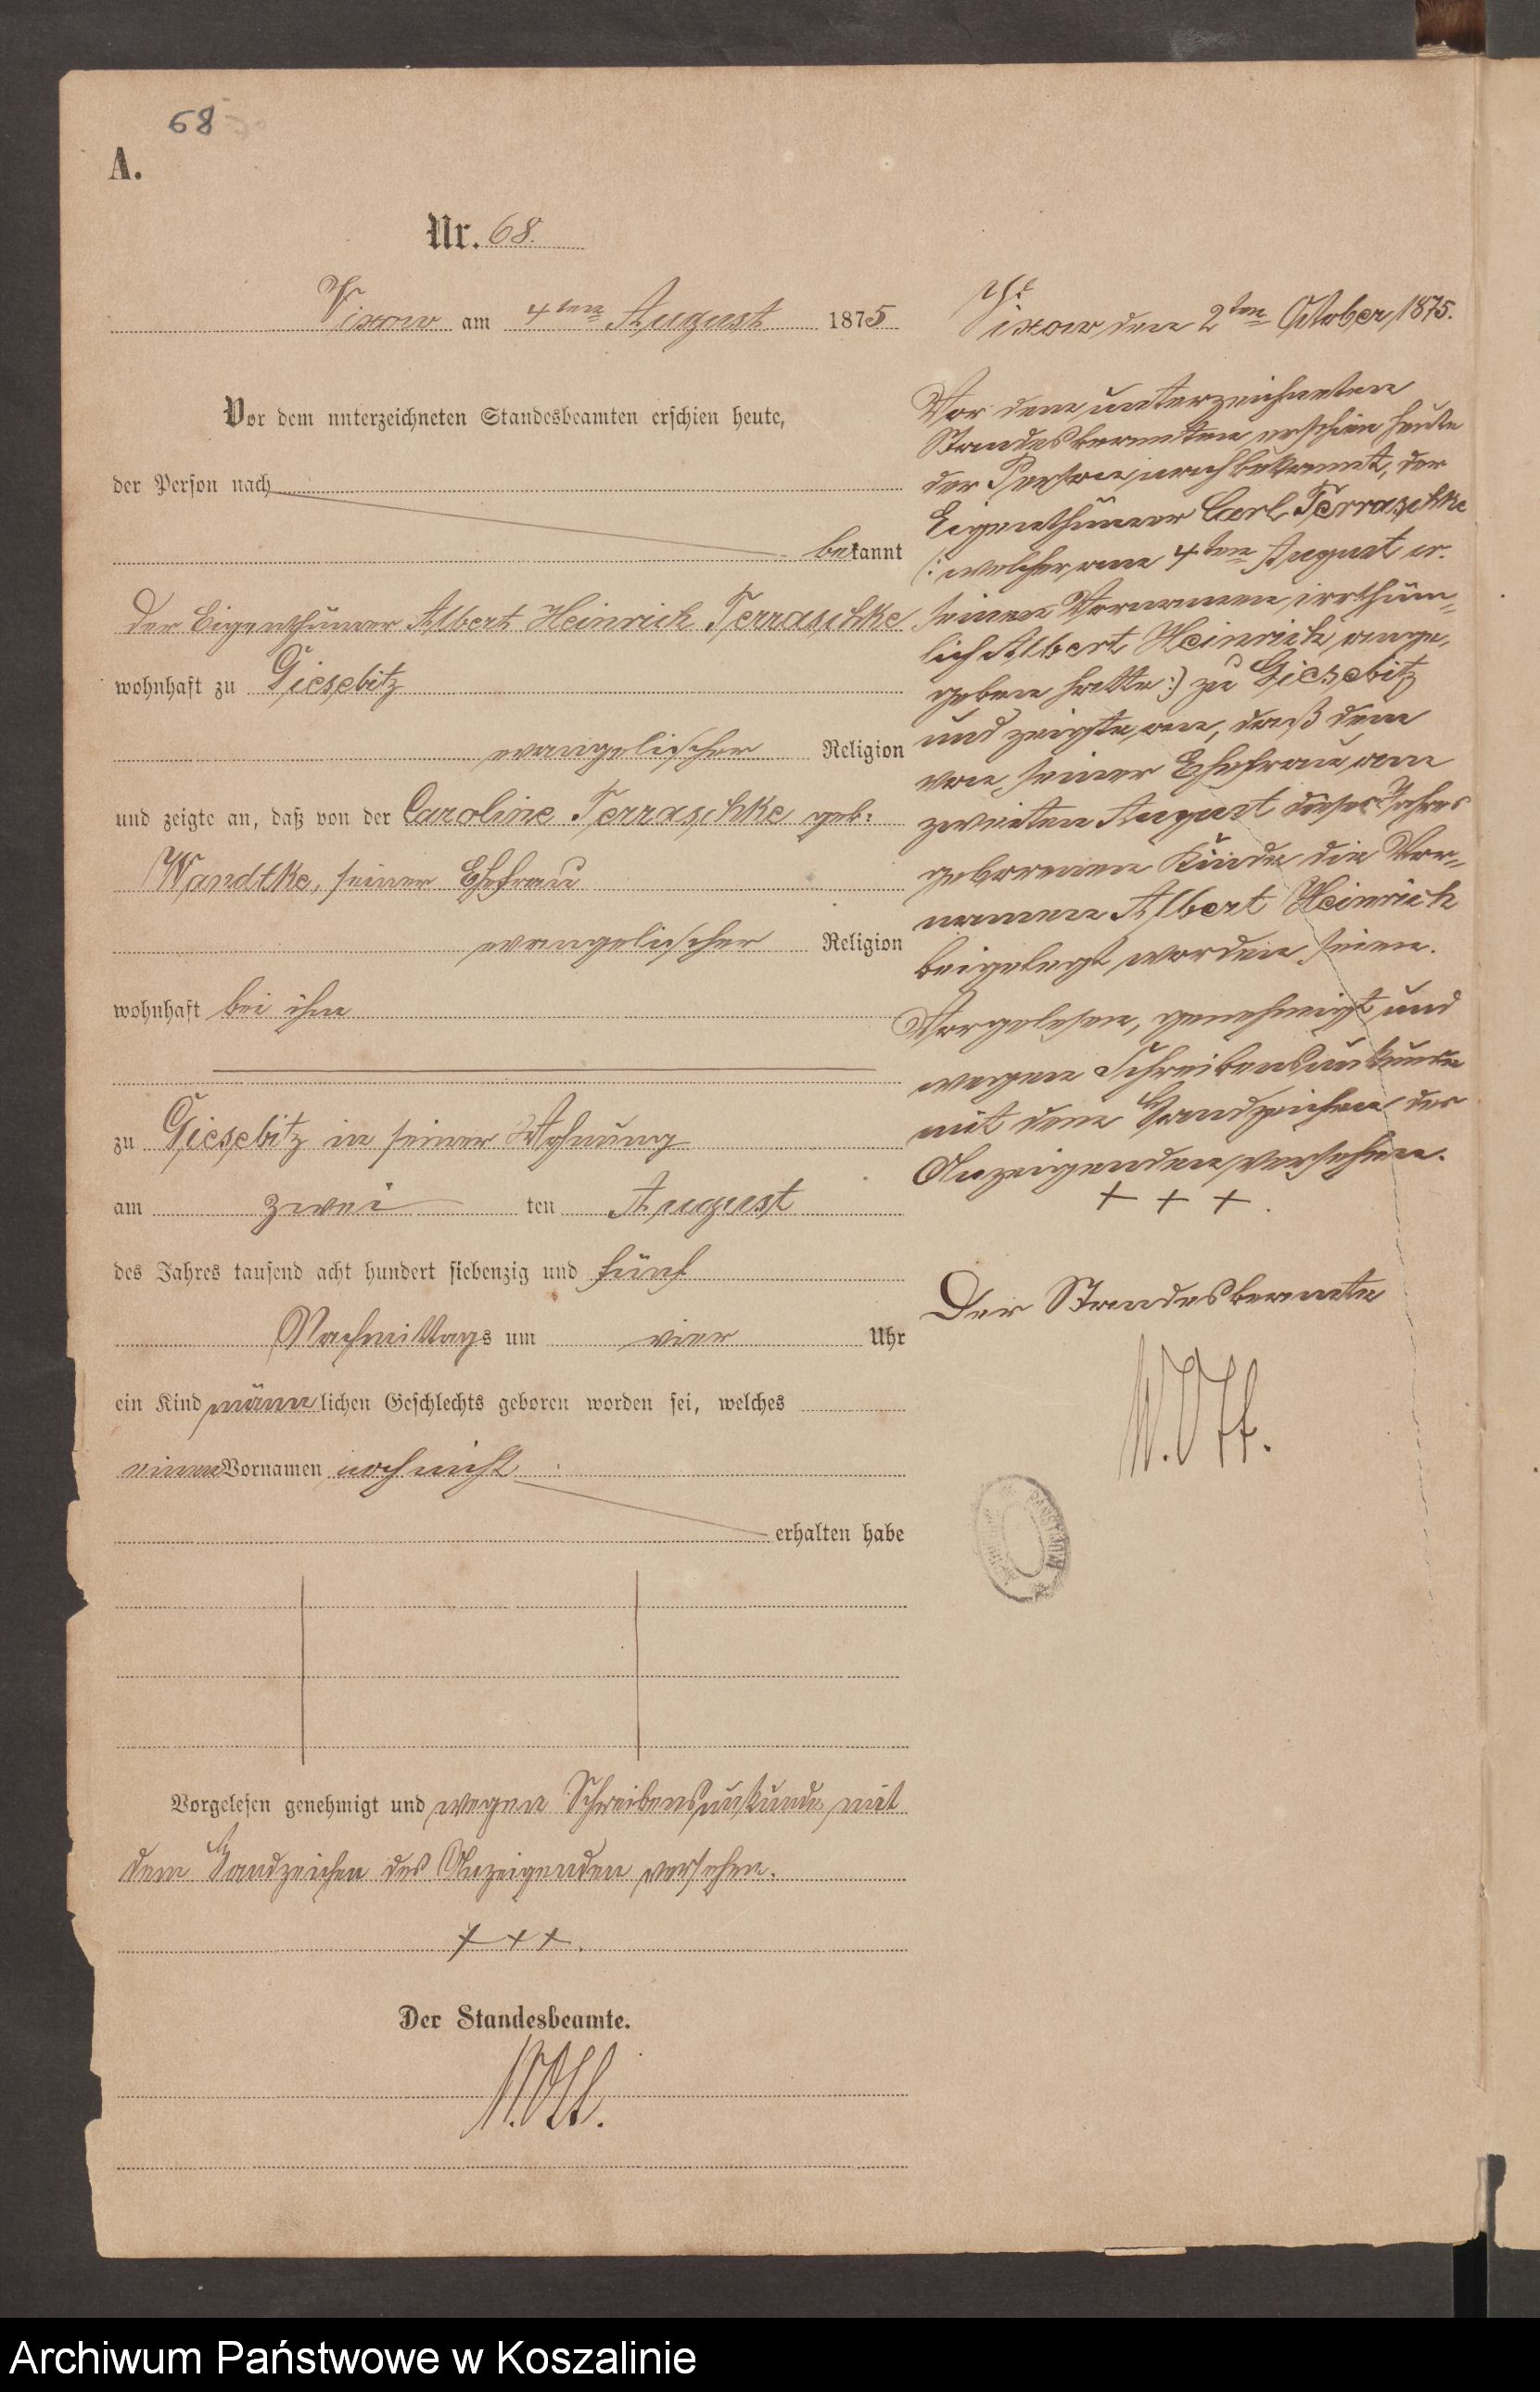 68
A.
Nr. 68.
Vixow am 4ten August 1875
Vor dem unterzeichneten Standesbeamten erschien heute,
der Person nach
bekannt
der Eigenthümer Albert Heinrich Terraschke
wohnhaft zu Giesebitz
evangelischer Religion
und zeigte an, daß von der Caroline Terraschke geb:
Wandtke, seiner Ehefrau
evangelischer Religion
wohnhaft bei ihm
zu Giesebitz in seiner Wohnung
am zwei ten August
des Jahres tausend acht hundert siebenzig und fünf
Nachmittags um vier Uhr
ein Kind männlichen Geschlechts geboren worden sei, welches
einen Vornamen noch nicht
erhalten habe
Vorgelesen genehmigt und wegen Schreibensunkunde mit
dem Handzeichen des Anzeigenden versehen.
+ + +.
Der Standesbeamte.
W. Ott.
Vixow den 2ten October 1875.
Vor dem unterzeichneten
Standesbeamten erschien heute
der Person nach bekannt, der
Eigenthümer Carl Terraschke
(: welcher am 4ten August cr.
seinen Vornamen irrthüm-
lich Albert Heinrich ange-
geben hatte :) zu Giesebitz
und zeigte an, daß dem
von seiner Ehefrau am
zweiten August dieses Jahres
geborenen Kinde die Vor-
namen Albert Heinrich
beigelegt worden seien.
Vorgelesen, genehmigt und
wegen Schreibensunkunde
mit dem Handzeichen des
Anzeigenden versehen.
+ + +.
Der Standesbeamte
W. Ott.
Archiwum Państwowe w Koszalinie